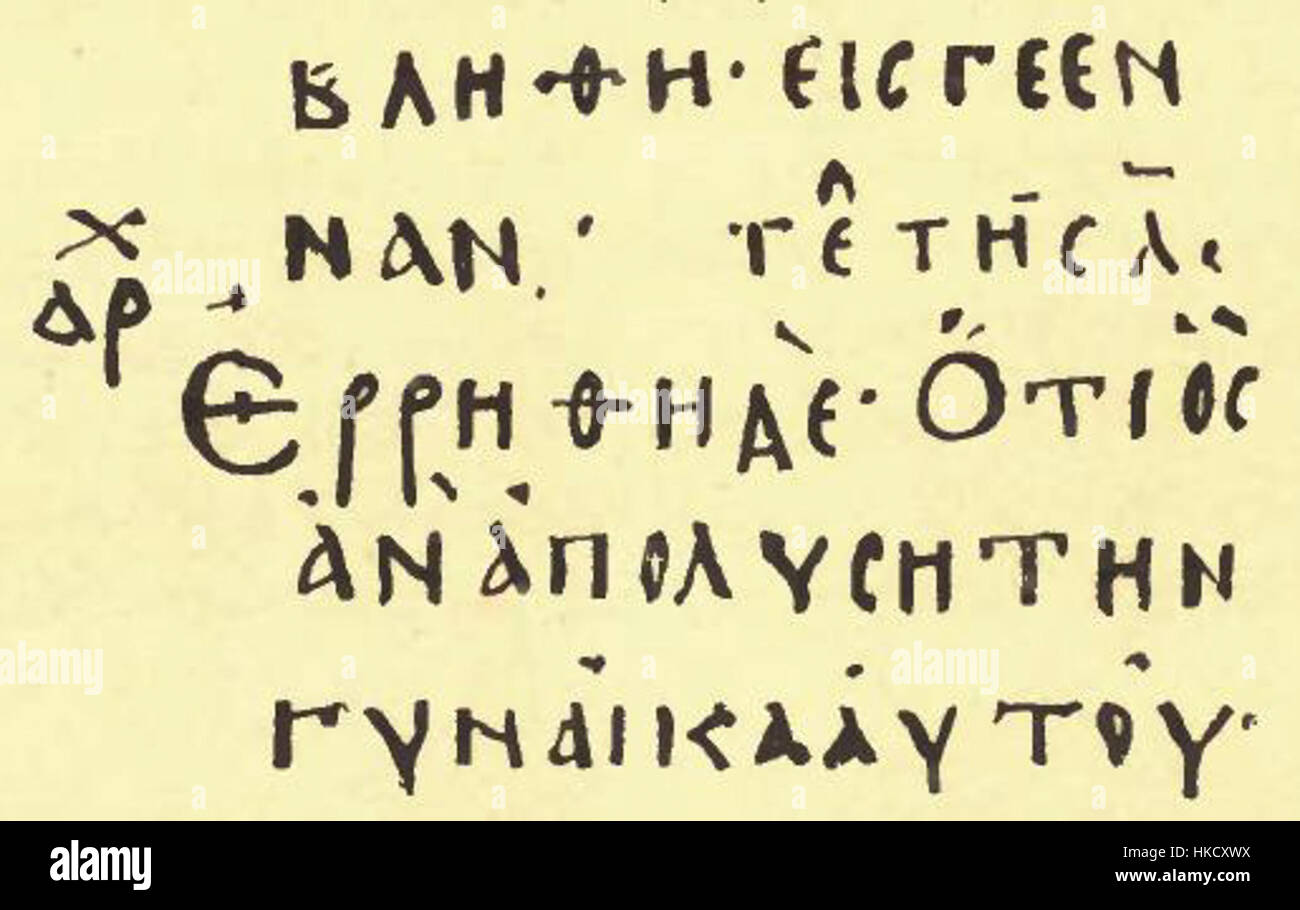 ΒΛΗΘΗ· ΕΙС ΓΕΕΝ
ΝΑΝ· ΤΕ ΤΗС
ΑΡΧ
ΕΡΡΗΘΗ ΔΕ· ΟΤΙ ΟС
ΑΝ ΑΠΟΛΥСΗ ΤΗΝ
ΓΥΝΑΙΚΑ ΑΥΤΟΥ·
alamy stock photo
HKCXWX
www.alamy.com